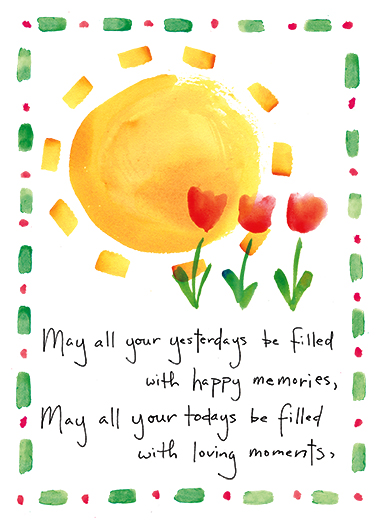 May all your yesterdays be filled
with happy memories,
May all your todays be filled
with loving moments,